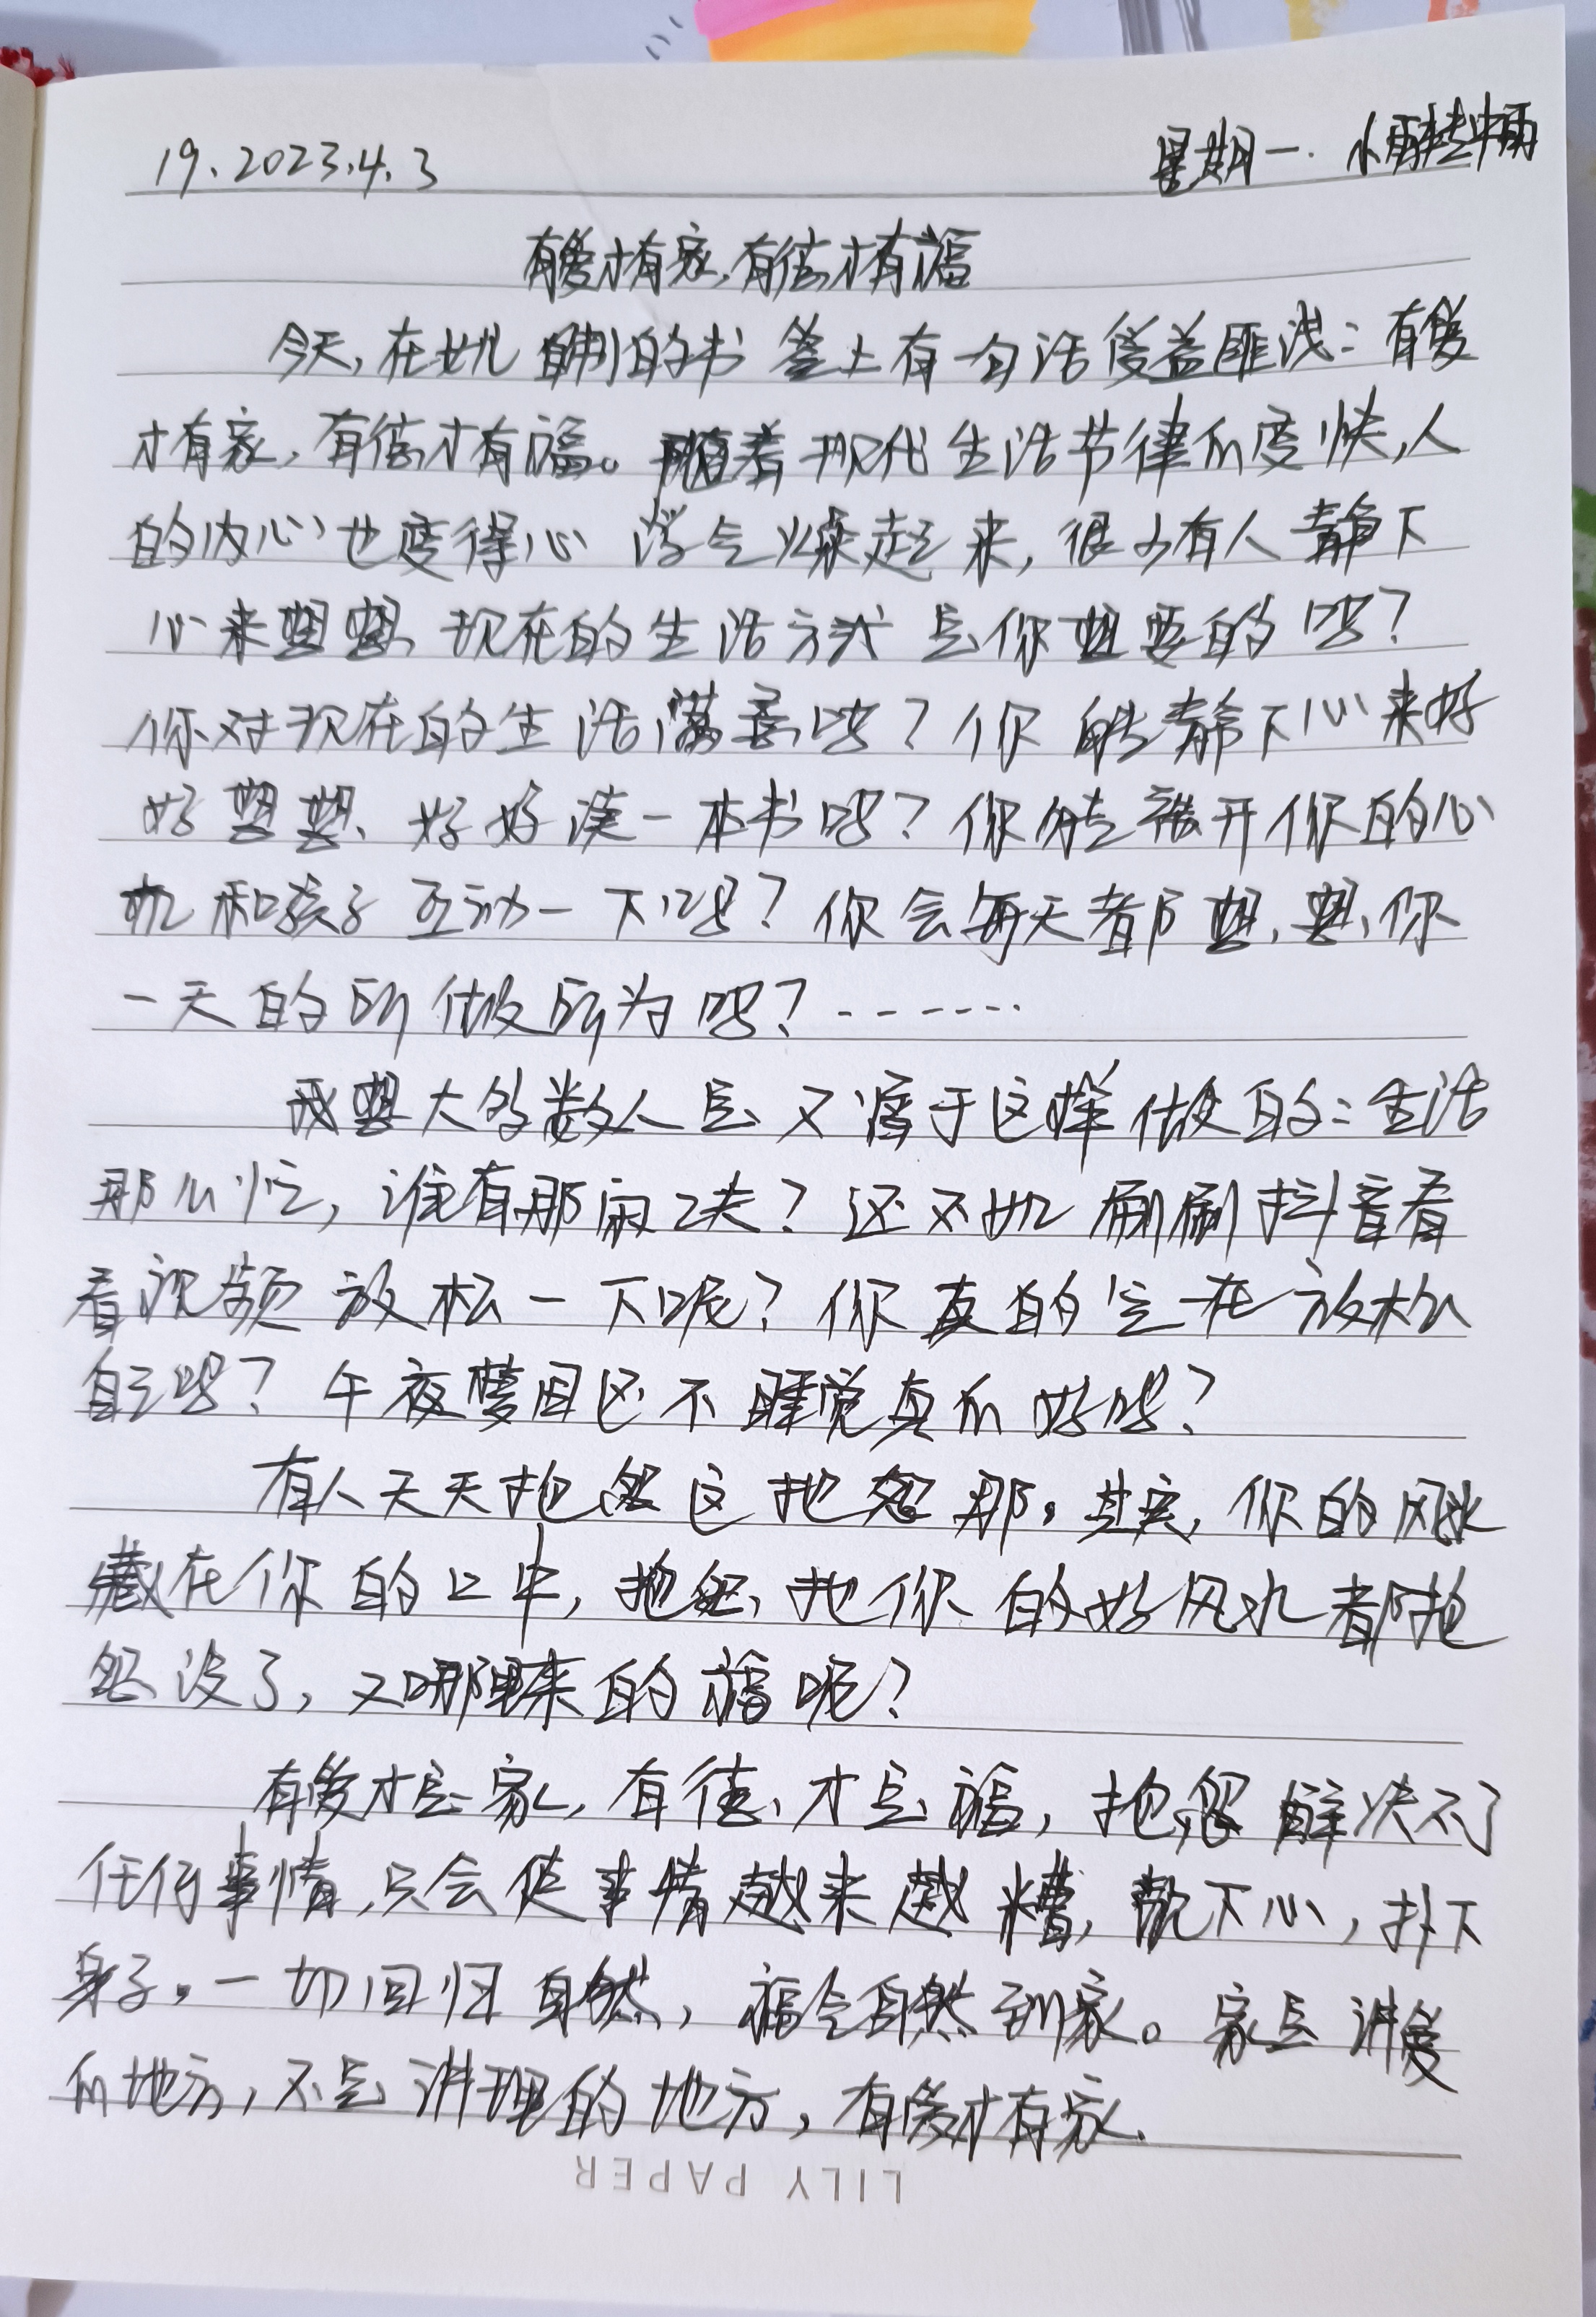 19.2023.4.3 星期一. 小雨转中雨
有爱才有家,有德才有福
今天,在 自制的书签上有一句话受益匪浅:有爱
才有家,有德才有福。随着现代生活节律的变快,人
的内心也变得心浮气燥起来,很少有人静下
心来想想现在的生活方式是你想要的吗?
你对现在的生活满意吗?你能静下心来好
好想想、好好读一本书吗?你能离开你的心
机和孩子互动一下吗?你会每天都想想你
一天的所做所为吗?……
我想大多数人是不屑于这样做的:生活
那么忙,谁有那闲工夫?还不如刷刷抖音看
看视频放松一下呢?你真的是在放松
自己吗?午夜梦回还不睡觉真的好吗?
有人天天抱怨这抱怨那。其实,你的风水
藏在你的口中,抱怨、把你的好风水都抱
怨没了,又哪里来的福呢?
有爱才是家,有德、才是福,抱怨解决不了
任何事情,只会使事情越来越糟,静下心,扑下
身子。一切回归自然,福会自然到家。家是讲爱
的地方,不是讲理的地方,有爱才有家.
LILY PAPER